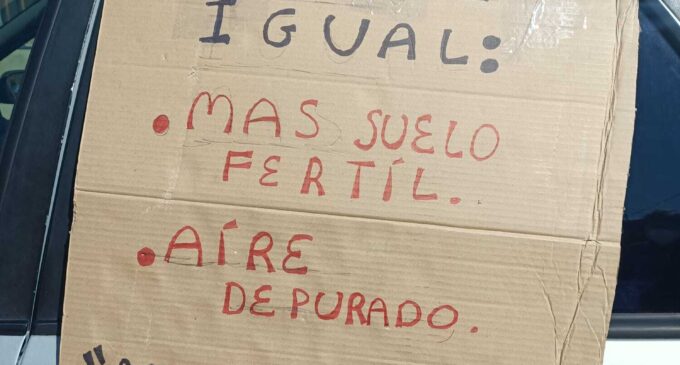 IGUAL:
• MAS SUELO
FERTÍL.
• AÍRE
DEPURADO.